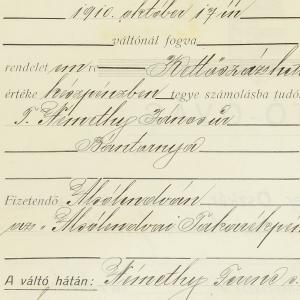 1910. október 17 én
váltónál fogva
rendelet em re Kettőszázhat
értéke készpénzben tegye számolásba tudó
T. Némethy János úr
Bántornya
Fizetendő Alsólendván
az: Alsólendvai Takarékpén
A váltó hátán: Némethy Ferenc s.